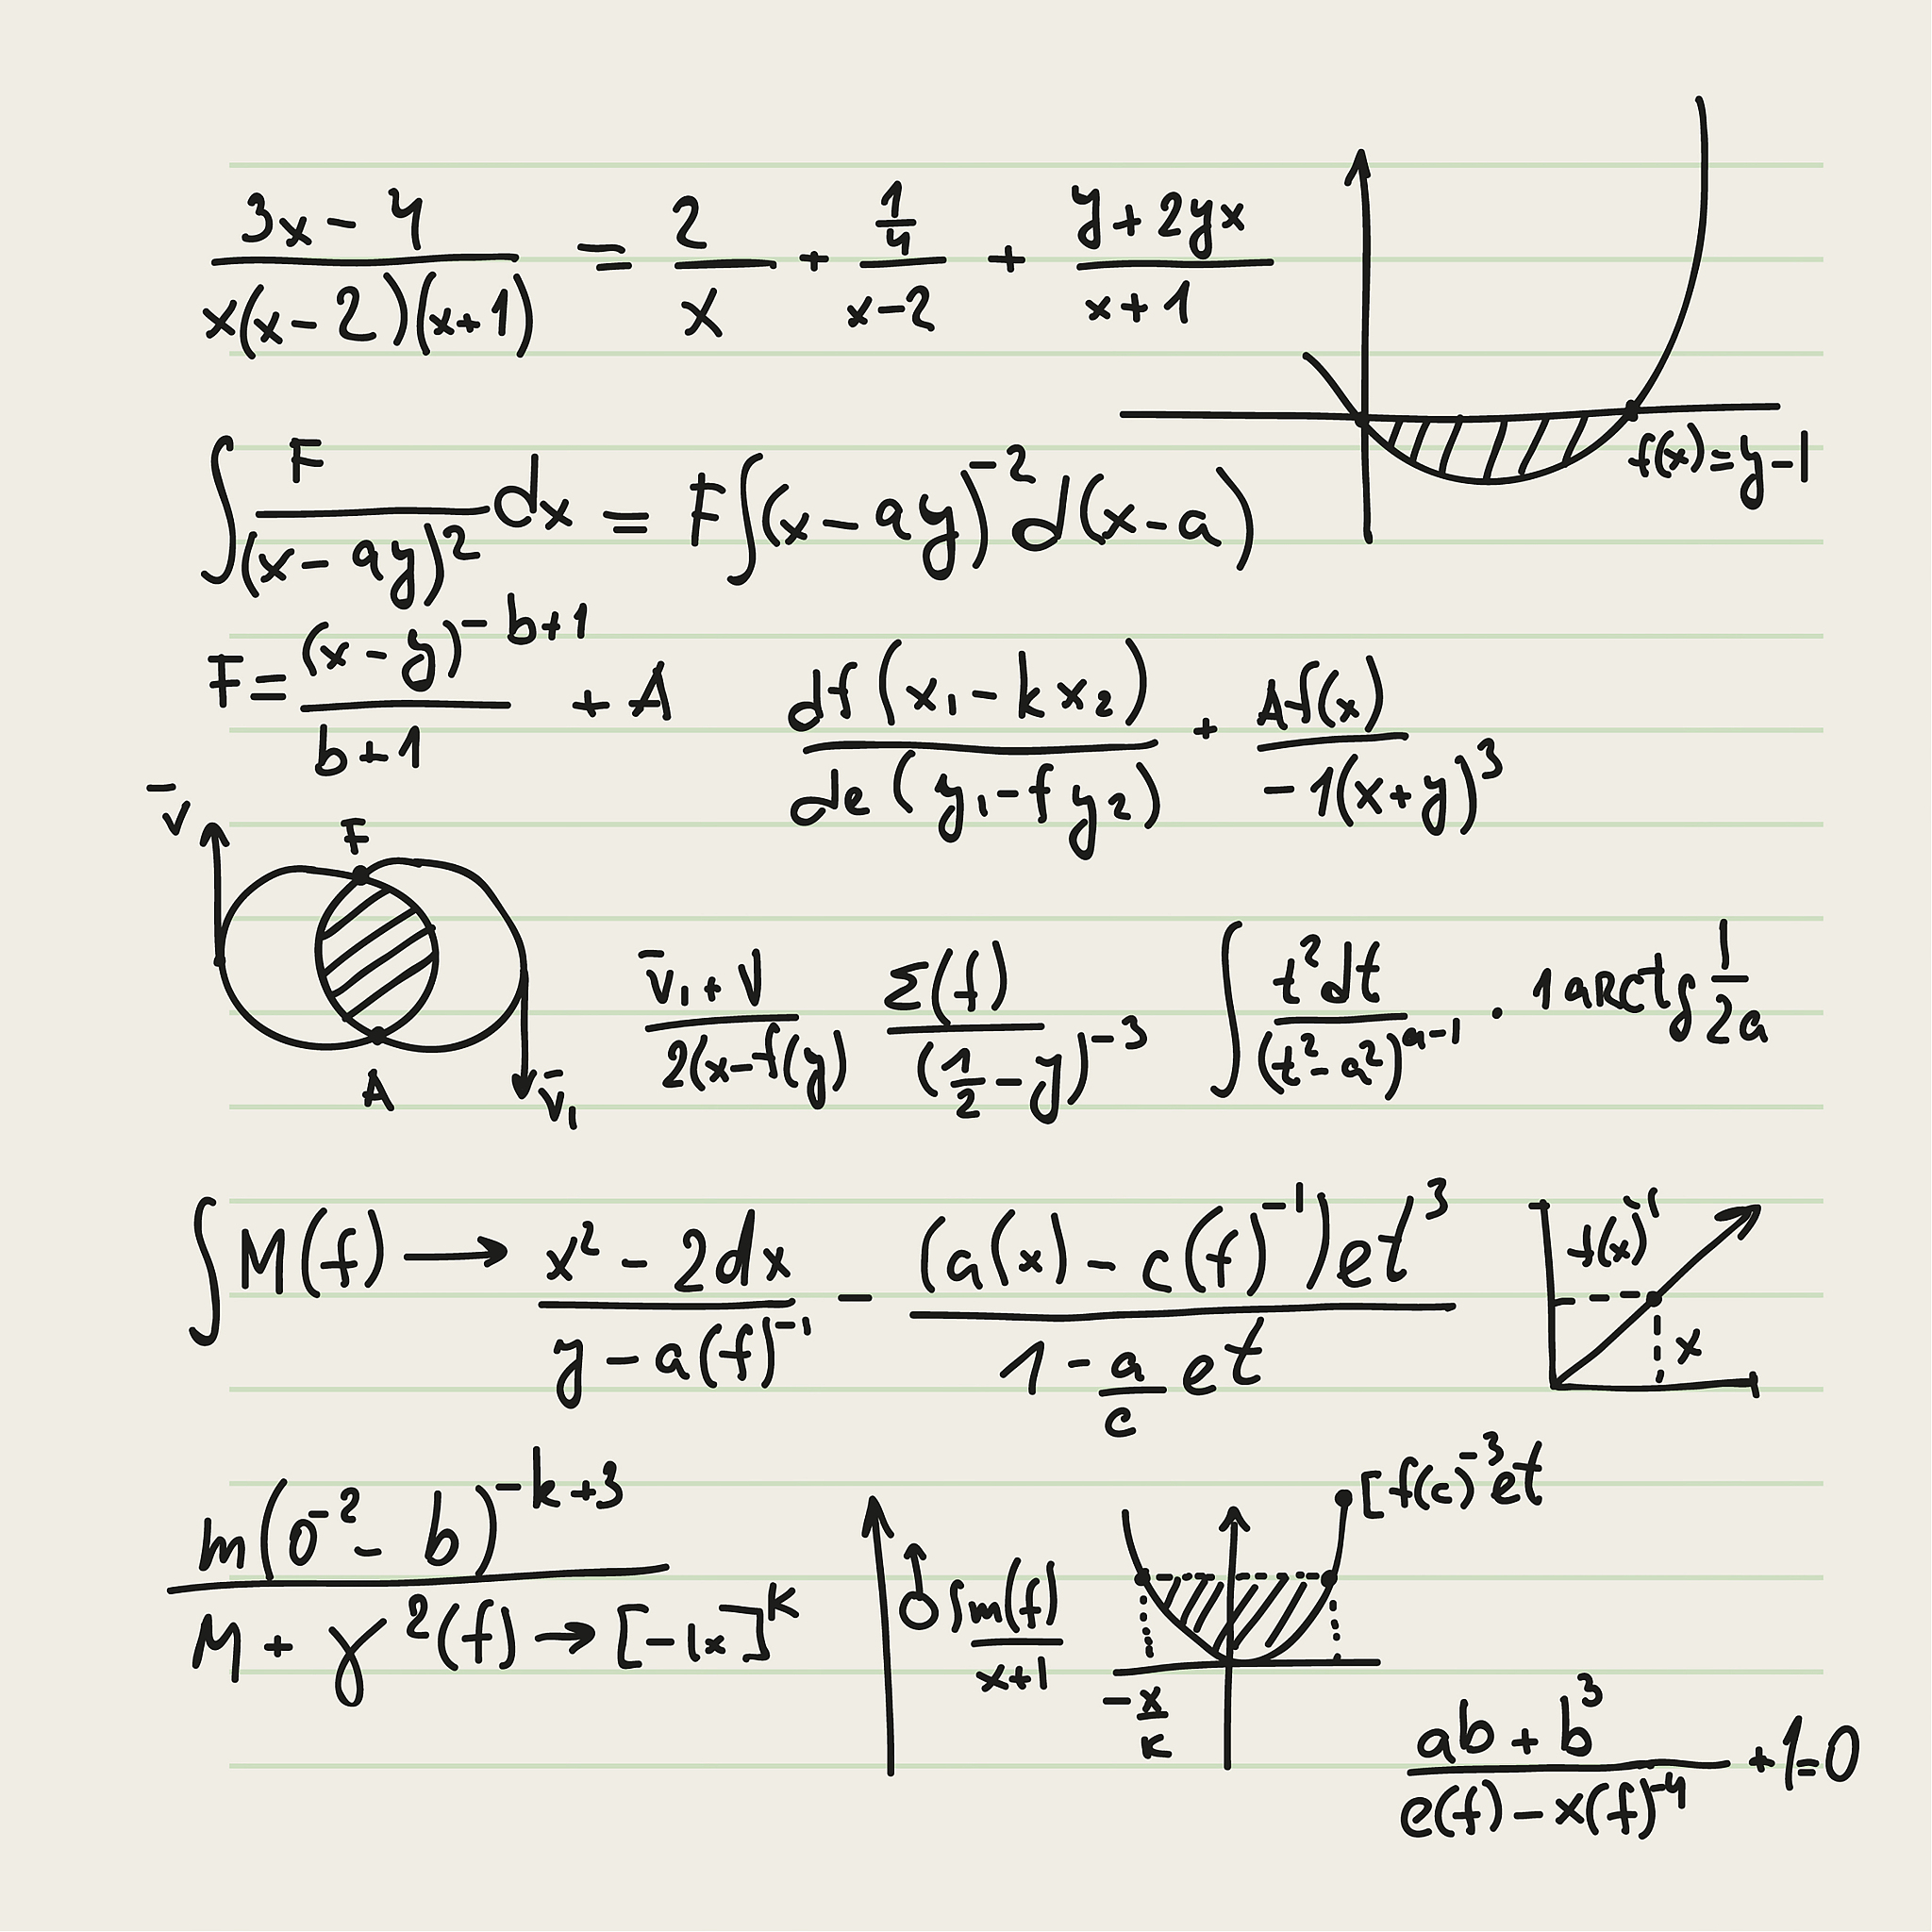 (3x - 4)/(x(x - 2)(x + 1)) = 2/x + (1/4)/(x - 2) + (y + 2yx)/(x + 1)
f(x) = y - 1
∫ F/(x - ay)² dx = F∫(x - ay)⁻² d(x - a)
F = (x - y)^(-b+1)/(b + 1) + A
df(x₁ - kx₂)/de(y₁ - fy₂) + Af(x)/(-1(x + y)³)
v̄
F
A
v̄₁
(v̄₁ + V)/(2(x - f(y)) Σ(f)/(1/2 - y)⁻³ ∫ t²dt/(t² - a²)^(a-1) · 1 aRctg 1/2a
∫ M(f) → (x² - 2dx)/(y - a(f)⁻¹) - ((a(x) - c(f)⁻¹)et³)/(1 - a/c et)
f(x)¹
x
m(o⁻² - b)^(-k+3)/(M + γ²(f) → [-1x]^k)
∫m(f)/(x+1)
[f(c)⁻³et
-x/k
(ab + b³)/(e(f) - x(f)⁻⁴) + 1 = 0